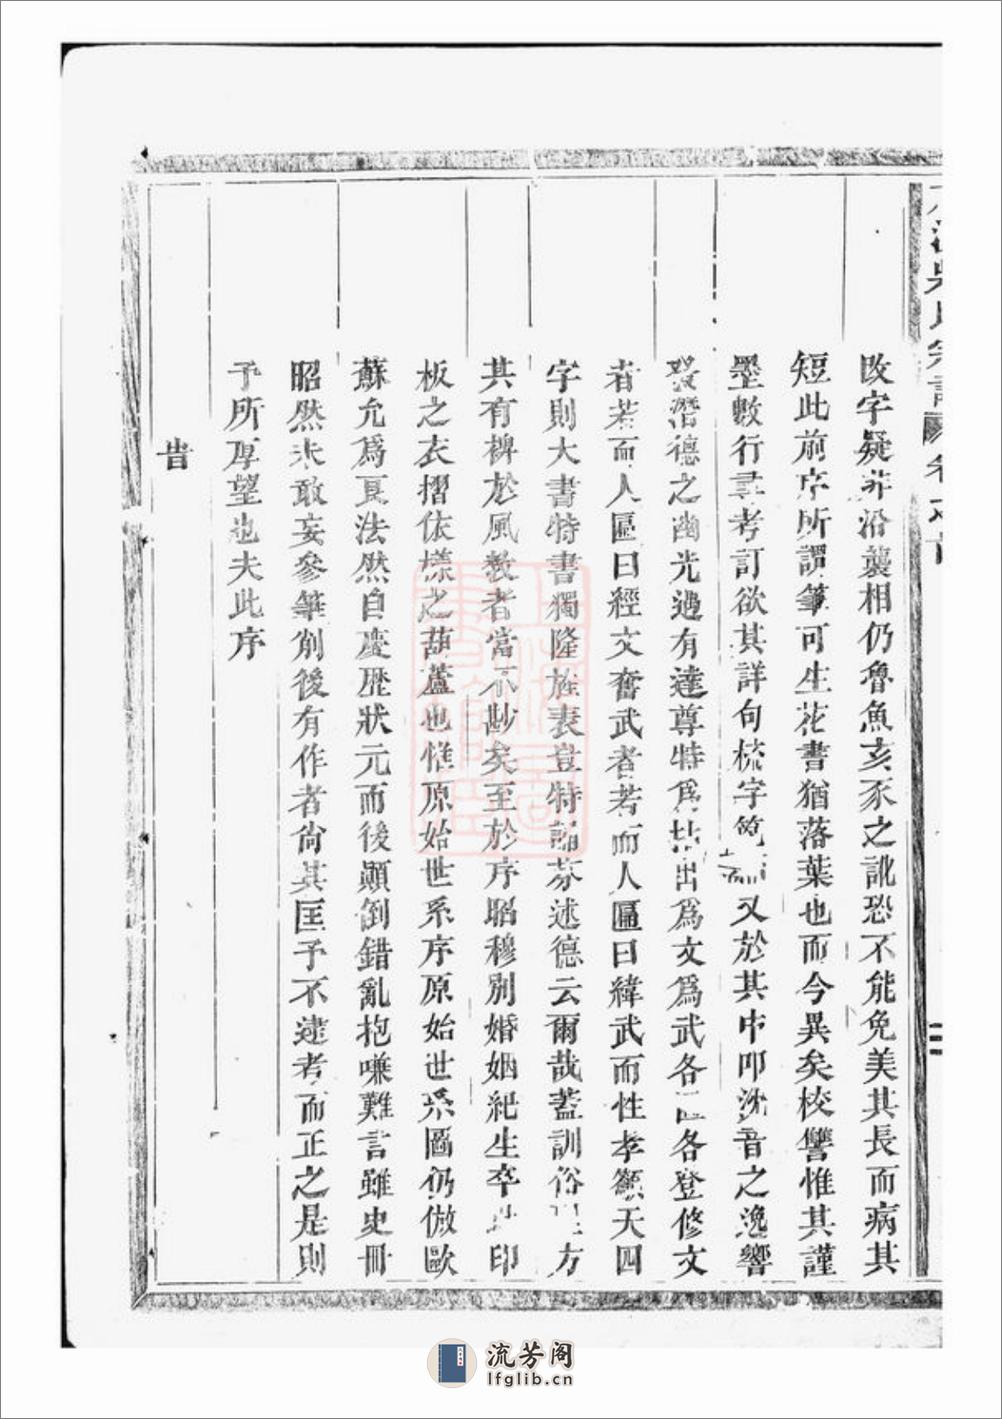 吳氏宗譜 卷之首
二
改字疑非沿襲相仍魯魚亥豕之訛恐不能免美其長而病其
短此前序所謂筆可生花書猶落葉也而今異矣校讐惟其謹
墨數行尋考訂欲其詳句梳字又於其中叩沈音之逸響
發潛德之幽光遇有達尊特爲拈出爲文爲武各區各登修文
者若而人匾曰經文奮武者若而人匾曰緯武而性孝籲天四
字則大書特書獨隆旌表豈特誦芬述德云爾哉蓋訓俗方
其有裨於風教者當不尠矣至於序昭穆別婚姻紀生卒印
板之衣摺依樣之葫蘆也惟原始世系序原始世系圖仍倣歐
蘇允爲良法然自慶歷狀元而後顚倒錯亂抱嗛難言雖史冊
昭然未敢妄參筆削後有作者尙其匡予不逮考而正之是則
予所厚望也夫此序
旹
流芳阁
lfglib.cn